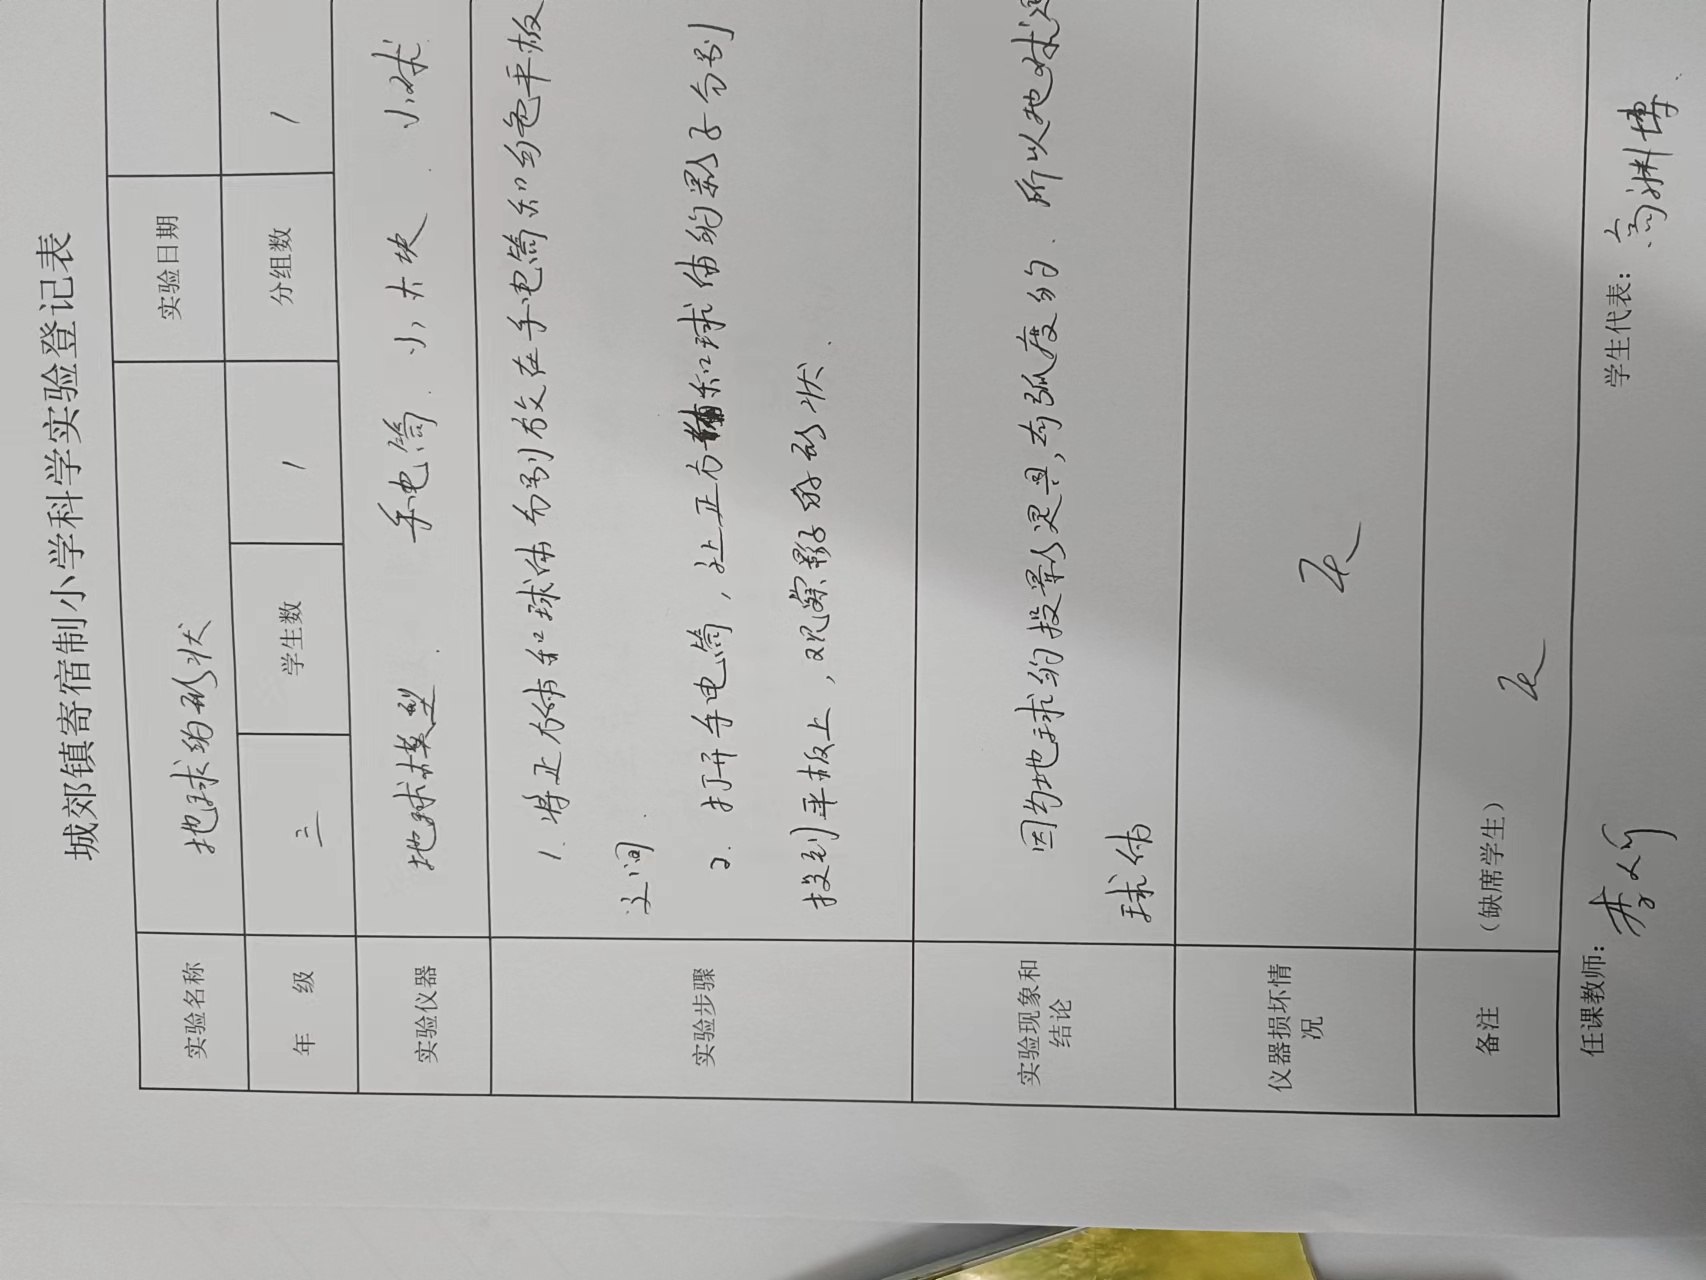 城郊镇寄宿制小学科学实验登记表
实验名称 地球的形状 实验日期
年 级 三 学生数 / 分组数 /
实验仪器 地球模型 手电筒 小木块 小球
实验步骤
1. 将正方体和球体分别放在手电筒和白色平板
之间
2. 打开手电筒，让正方体和球体的影子分别
投到平板上，观察影子的形状.
实验现象和
结论
因为地球的投影是圆，有弧度的. 所以地球是
球体
仪器损坏情
况
无
备注 （缺席学生）
无
任课教师： 学生代表： 高渊博